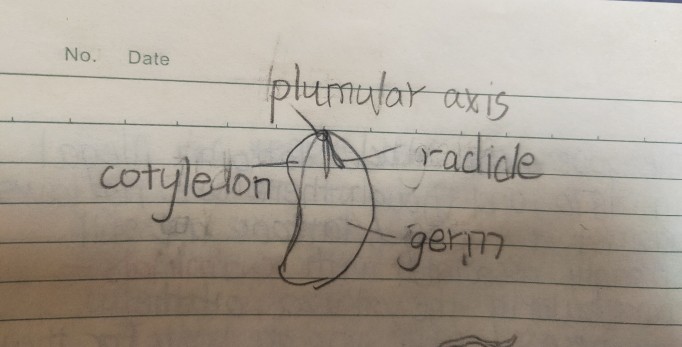 No. Date
plumular axis
radicle
cotyledon
germ